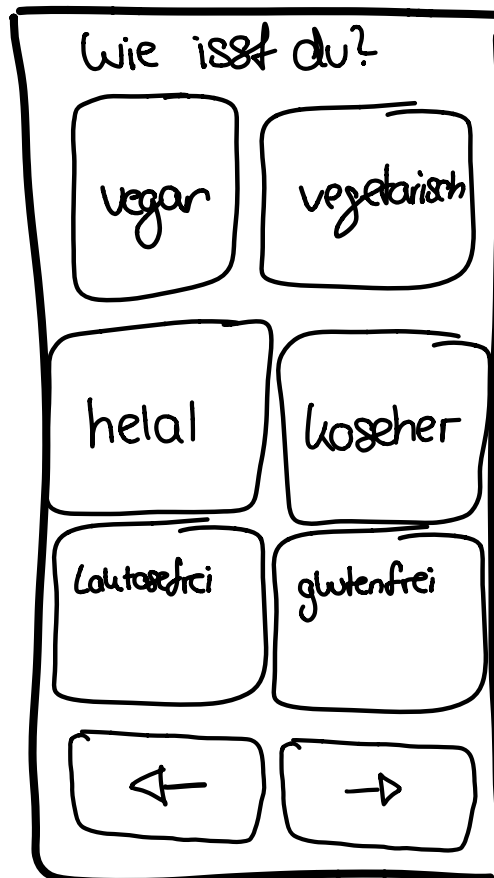 Wie isst du?
vegan
vegetarisch
helal
koseher
Laktosefrei
glutenfrei